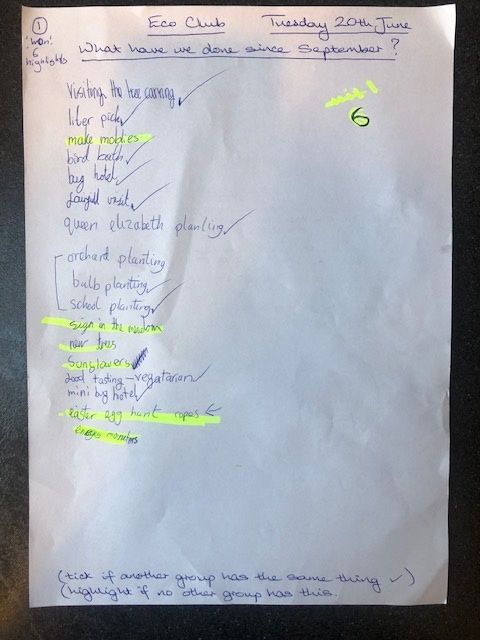 ① Eco Club Tuesday 20th June
'won'
6
highlights
What have we done since September?
Visiting the tree carving ✓
liter pick ✓
make moblies
bird bath ✓
bug hotel ✓
visit ✓
queen elizabeth planting ✓
orchard planting
bulb planting ✓
school planting ✓
sign in the
new trees
Sunflowers
food tasting - vegatarian ✓
mini bug hotel ✓
easter egg hunt ropes
energy monitors
6
(tick if another group has the same thing ✓)
(highlight if no other group has this.